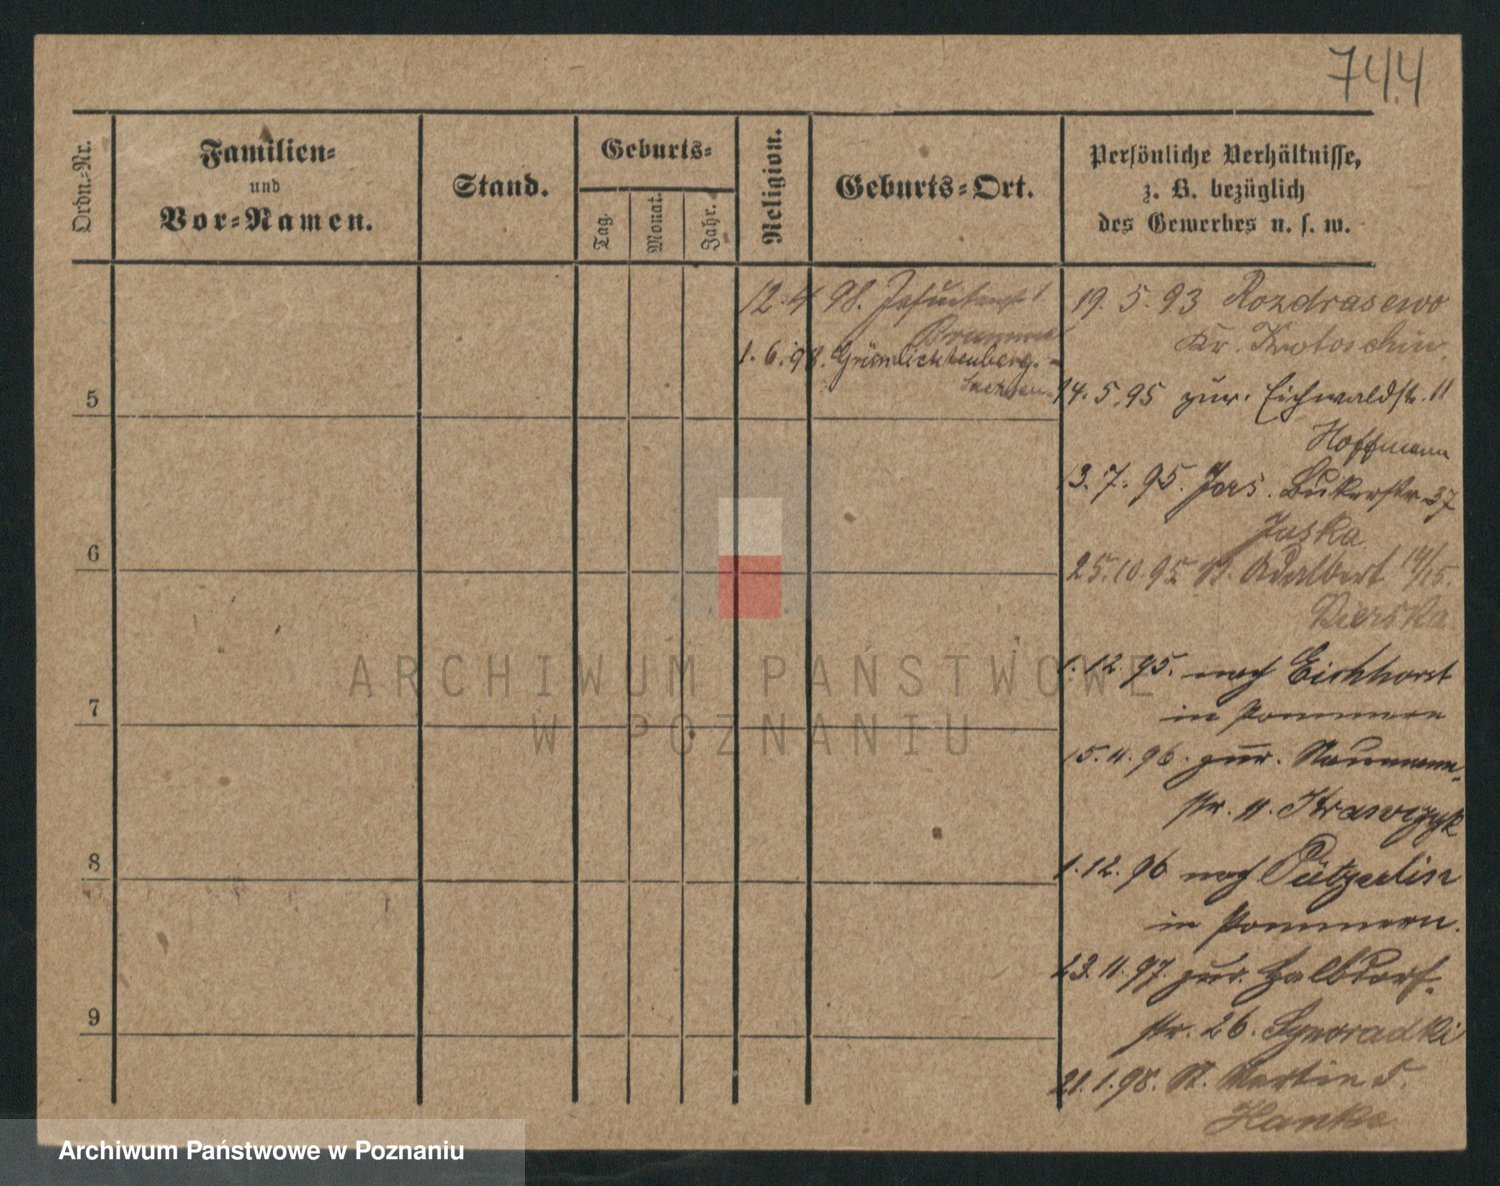 744
Ordn.-Nr.
Familien-
und
Vor-Namen.
Stand.
Geburts-
Tag.
Monat.
Jahr.
Religion.
Geburts-Ort.
Persönliche Verhältnisse,
z. B. bezüglich
des Gewerbes u. s. w.
12. 4. 98. Jesuitenstr
1. 6. 98. Grünlichtenberg.
Sachsen
19. 5. 93 Rozdrasewo
Kr. Krotoschin.
14. 5. 95 zur. Eichwaldstr. 11
Hoffmann
13. 7. 95. Jers. Bukerstr 37
Jaska
25. 10. 95 St. Adalbert 14/15.
Pierska
1. 12. 95. nach Eichhorst
in Pommern
15. 11. 96. zur. Naumann-
str. 11. Krawczyk
1. 12. 96 nach Pützerlin
in Pommern.
23. 11. 97. zur. Halbdorf-
str. 26. Sgnoradzki
21. 1. 98. St. Martin 5.
Hanke
5
6
7
8
9
ARCHIWUM PAŃSTWOWE
W POZNANIU
Archiwum Państwowe w Poznaniu